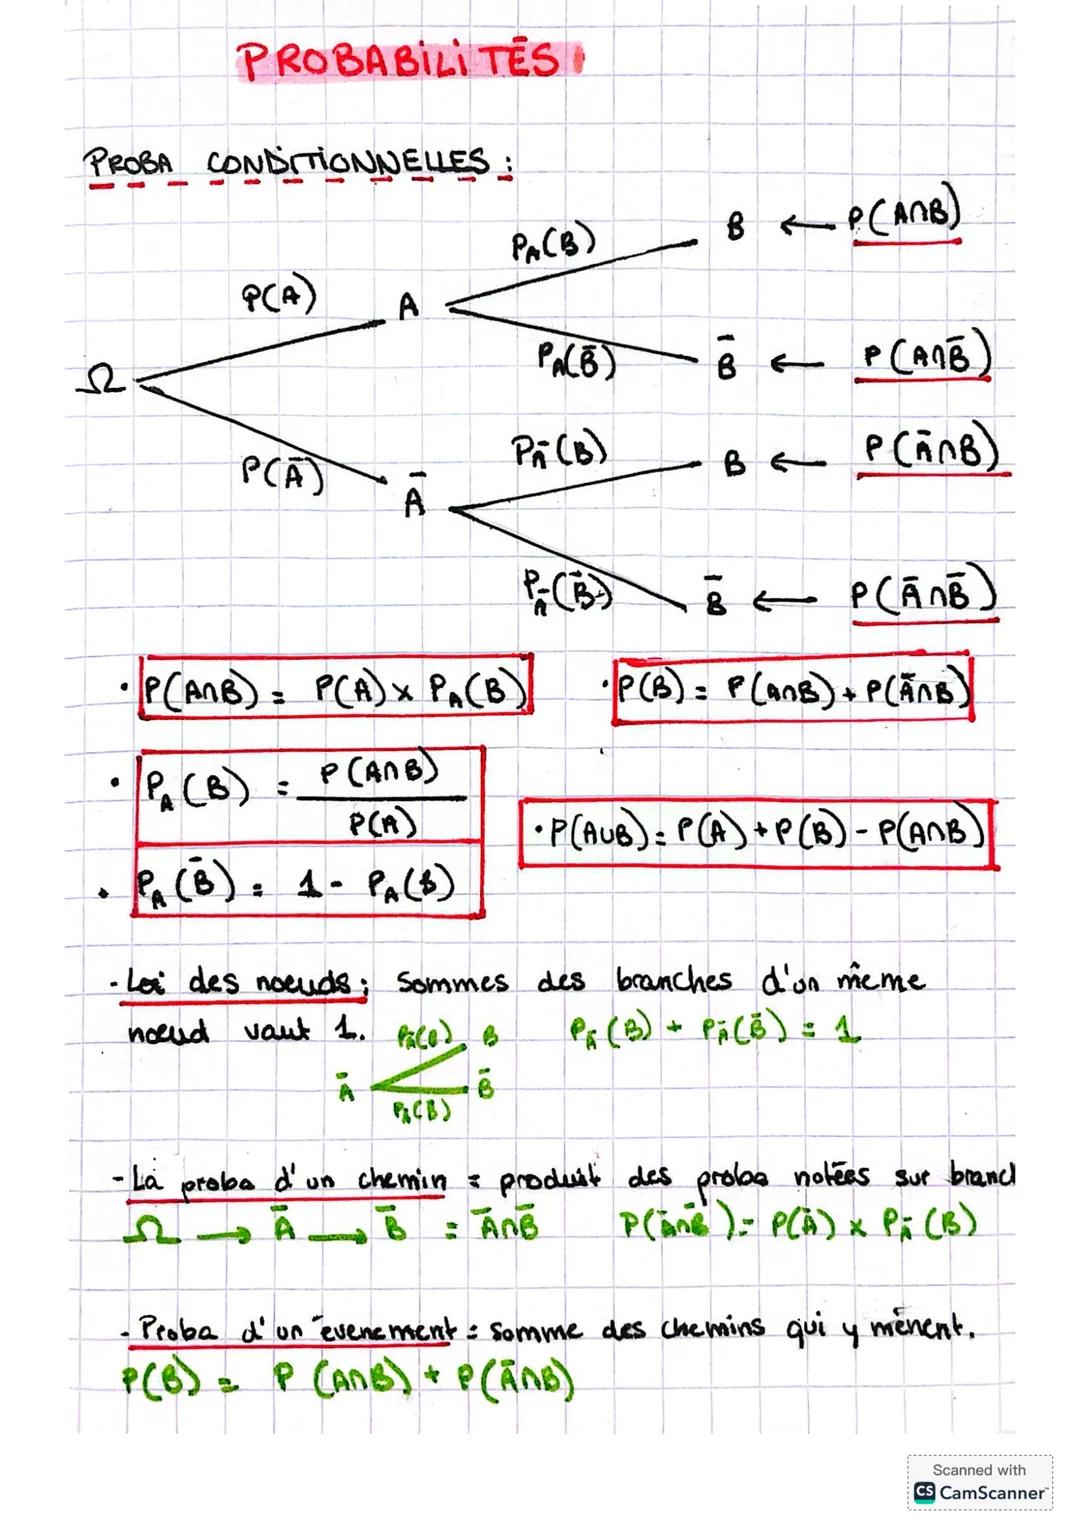 PROBABILITÉS
PROBA CONDITIONNELLES :
P_A(B) B ← P(A∩B)
P(A) A
P_A(B̄) B̄ ← P(A∩B̄)
Ω
P(Ā) Ā
P_Ā(B) B ← P(Ā∩B)
P_Ā(B̄) B̄ ← P(Ā∩B̄)
· P(A∩B) = P(A) × P_A(B)
· P(B) = P(A∩B) + P(Ā∩B)
· P_A(B) = P(A∩B) / P(A)
· P(A∪B) = P(A) + P(B) - P(A∩B)
· P_A(B̄) = 1 - P_A(B)
- Loi des noeuds : Sommes des branches d'un même
noeud vaut 1. P_Ā(B) B P_Ā(B) + P_Ā(B̄) = 1
Ā B̄
P_Ā(B̄)
- La proba d'un chemin = produit des proba notées sur branc
Ω → Ā → B̄ = Ā∩B̄ P(Ā∩B̄) = P(Ā) × P_Ā(B)
- Proba d'un évenement = somme des chemins qui y mènent.
P(B) = P(A∩B) + P(Ā∩B)
Scanned with
CS CamScanner